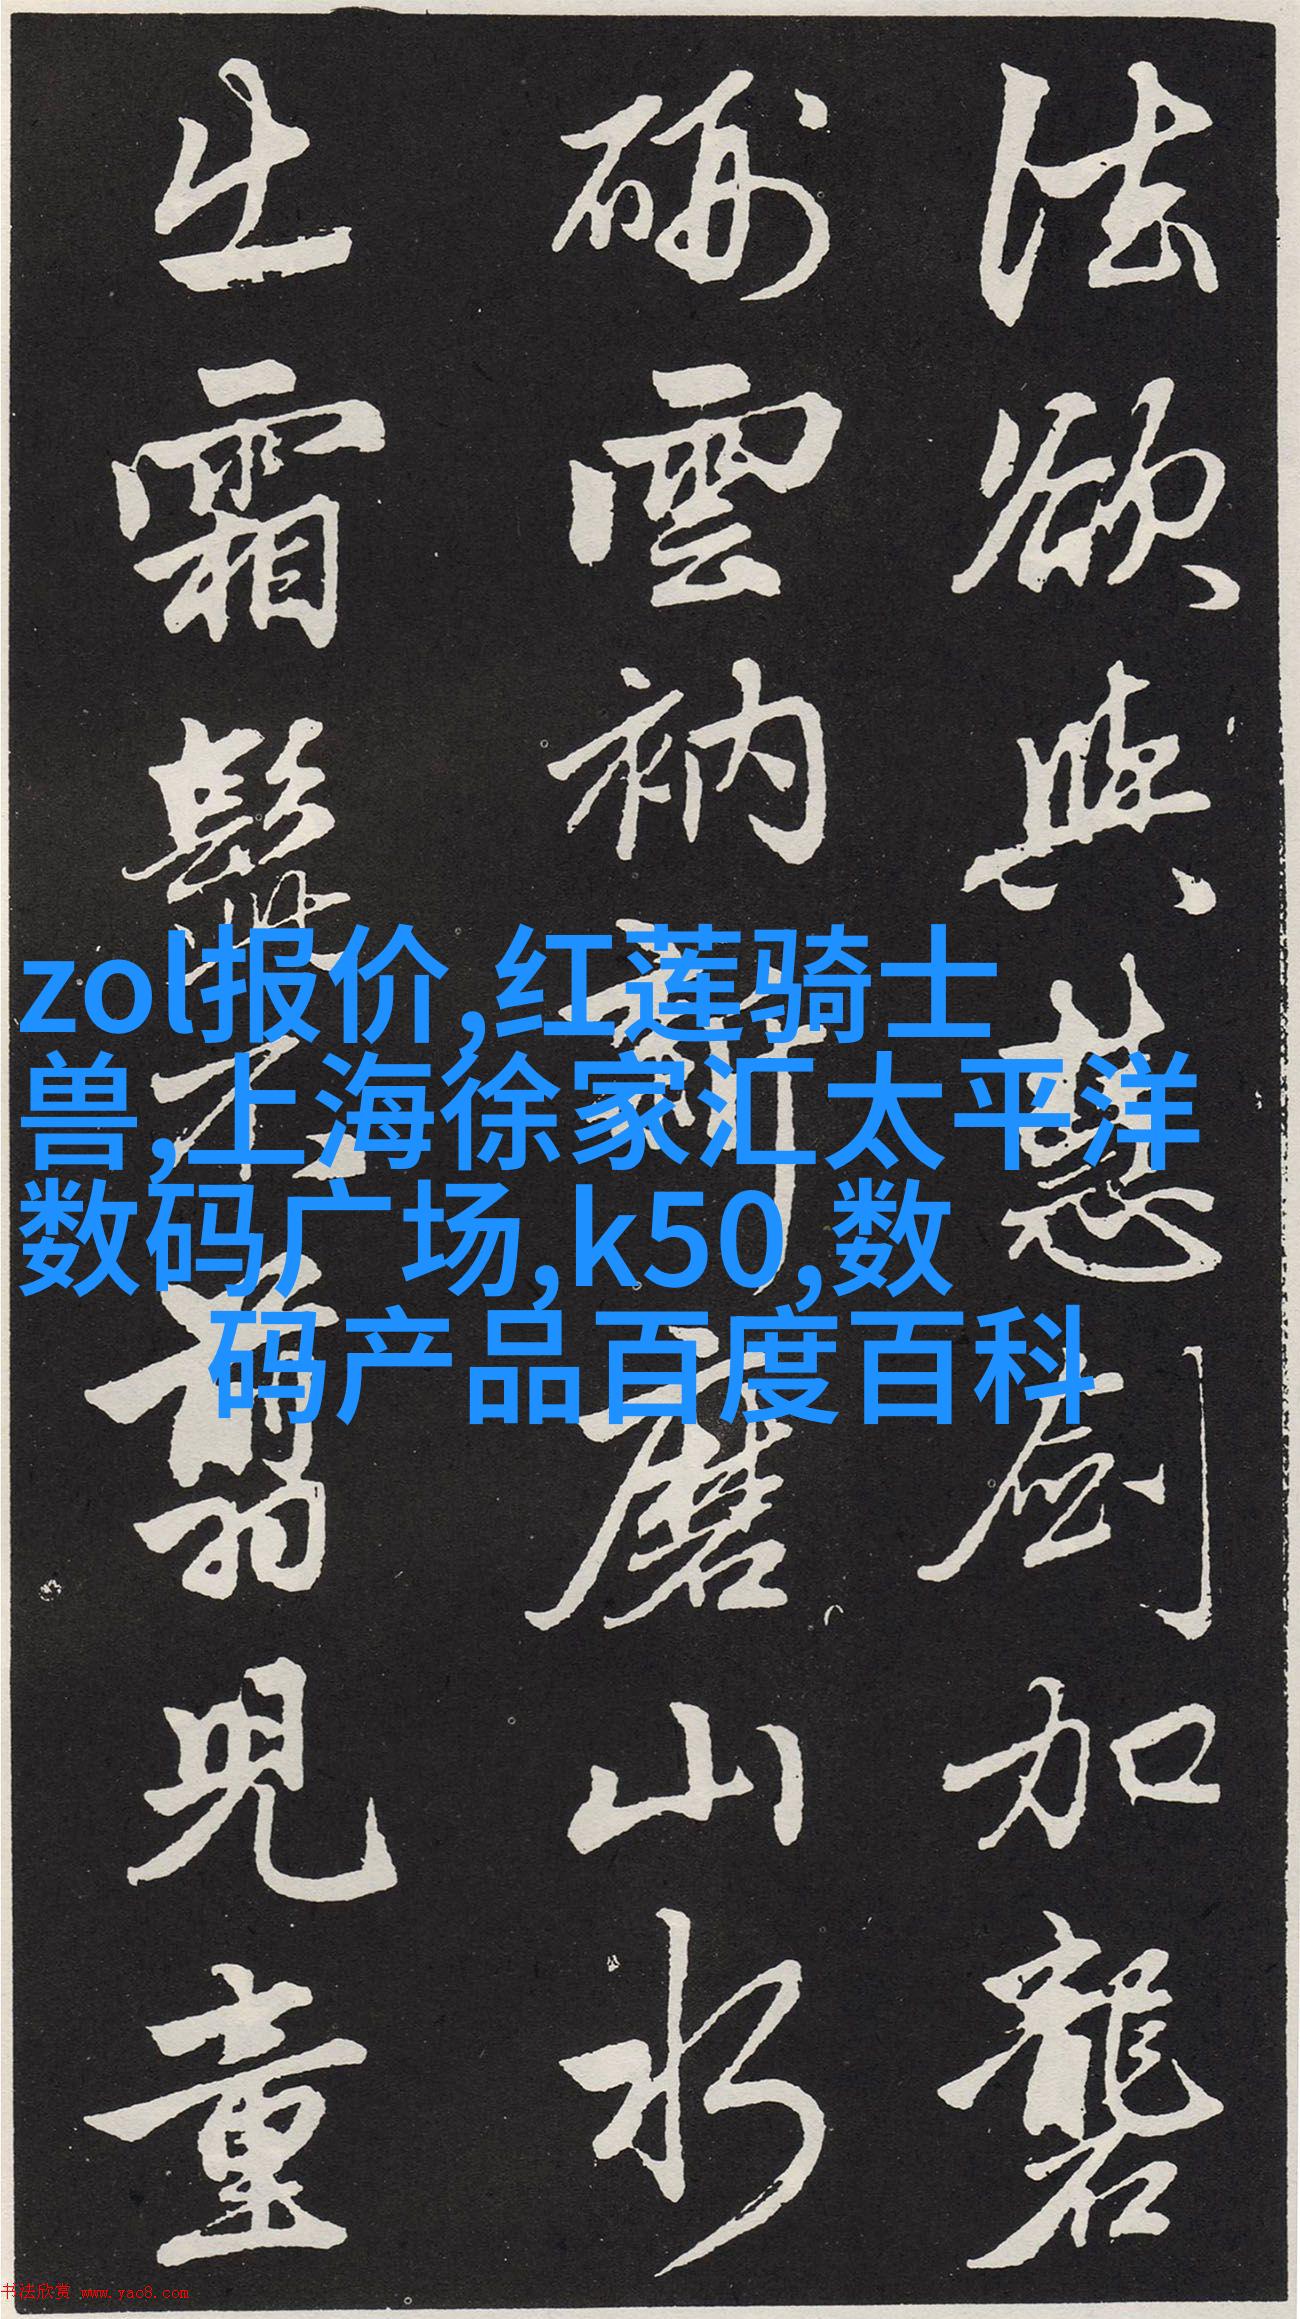 法欲與慧劍加礱
硎雲衲新磨山水
生霜鬢不剪兒童
zol报价,红莲骑士
兽,上海徐家汇太平洋
数码广场,k50,数
码产品百度百科
书法欣赏 www.yac8.com